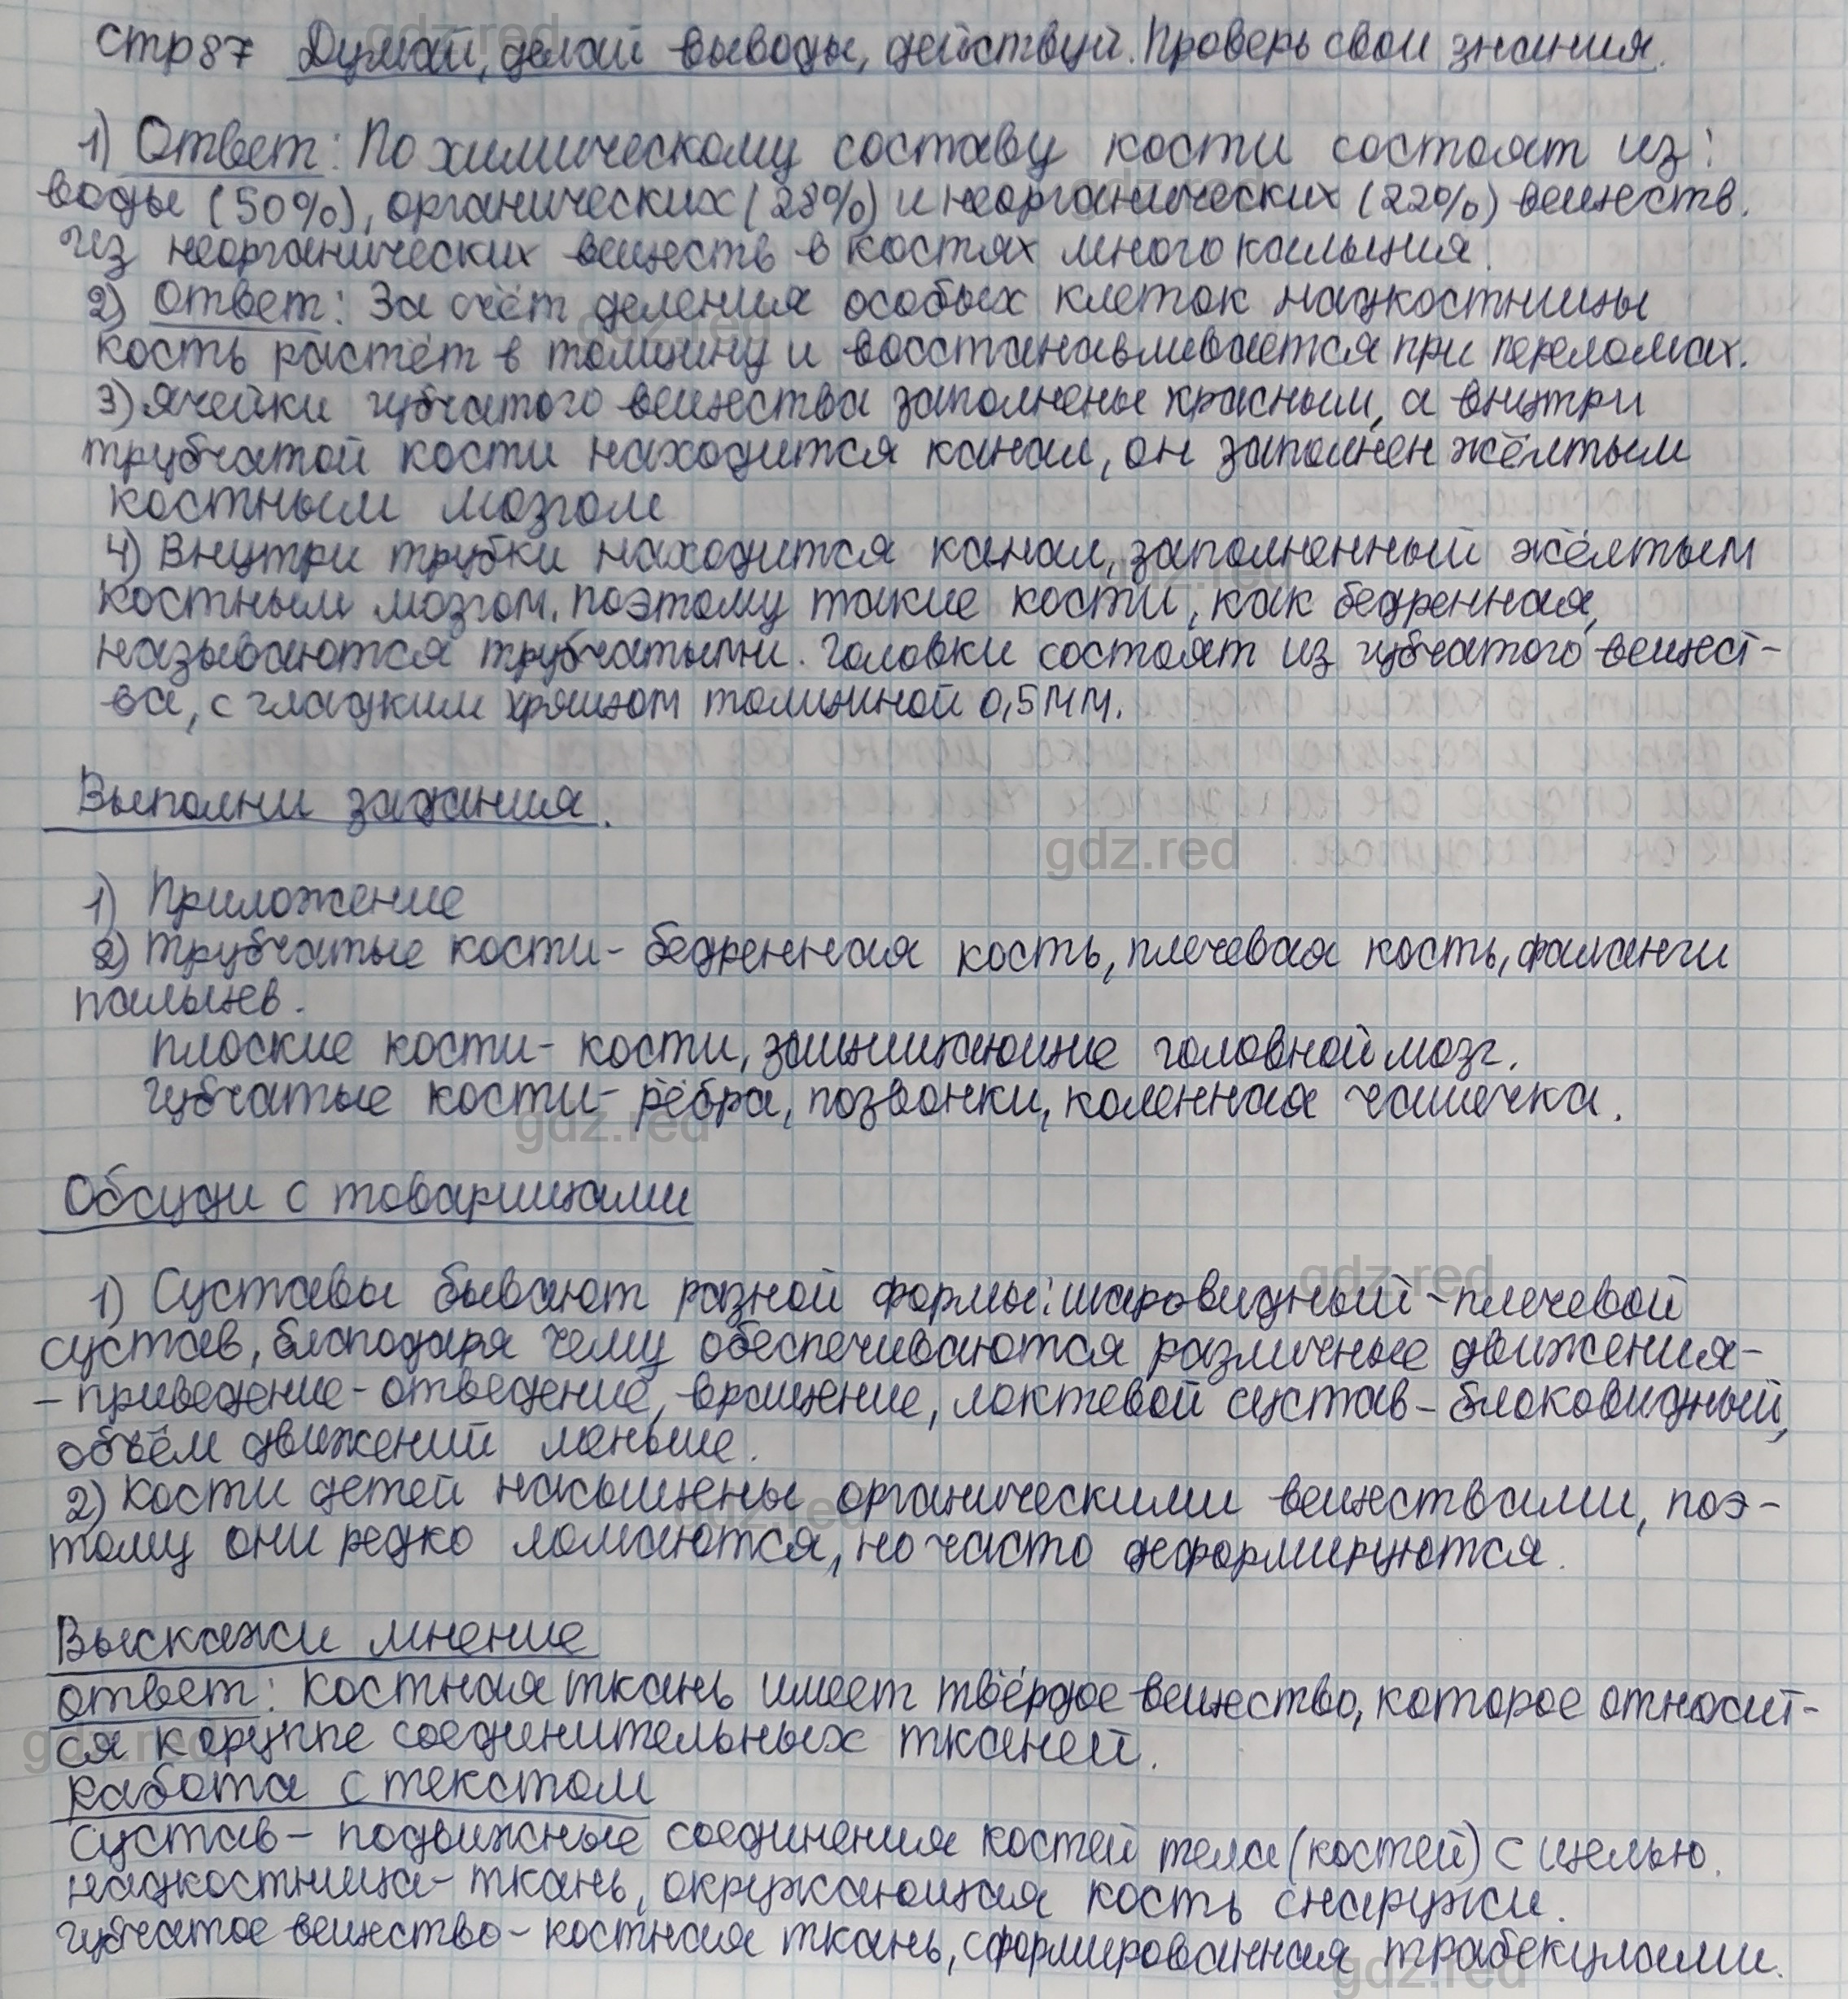 стр 87 Думай, делай выводы, действуй. Проверь свои знания.
1) Ответ: По химическому составу кости состоят из:
воды (50%), органических (28%) и неорганических (22%) веществ.
Из неорганических веществ в костях много кальция.
2) Ответ: За счёт деления особых клеток надкостницы
кость растёт в толщину и восстанавливается при переломах.
3) Ячейки губчатого вещества заполнены красным, а внутри
трубчатой кости находится канал, он заполнен жёлтым
костным мозгом
4) Внутри трубки находится канал, заполненный жёлтым
костным мозгом, поэтому такие кости, как бедренная,
называются трубчатыми. Головки состоят из губчатого вещест-
ва, с гладким хрящом толщиной 0,5 мм.
Выполни задания.
1) Приложение
2) Трубчатые кости - бедренная кость, плечевая кость, фаланги
пальцев.
плоские кости - кости, защищающие головной мозг.
губчатые кости - рёбра, позвонки, коленная чашечка.
Обсуди с товарищами
1) Суставы бывают разной формы: шаровидный - плечевой
сустав, благодаря чему обеспечиваются различные движения -
- приведение - отведение, вращение, локтевой сустав - блоковидный,
объём движений меньше.
2) Кости детей насыщены органическими веществами, поэ-
тому они редко ломаются, но часто деформируются.
Выскажи мнение
ответ: Костная ткань имеет твёрдое вещество, которое относит-
ся к группе соединительных тканей.
Работа с текстом
Сустав - подвижные соединения костей тела (костей) с щелью.
Надкостница - ткань, окружающая кость снаружи.
Губчатое вещество - костная ткань, сформированная трабекулами.
gdz.red
gdz.red
gdz.red
gdz.red
gdz.red
gdz.red
gdz.red
gdz.red
gdz.red
gdz.red